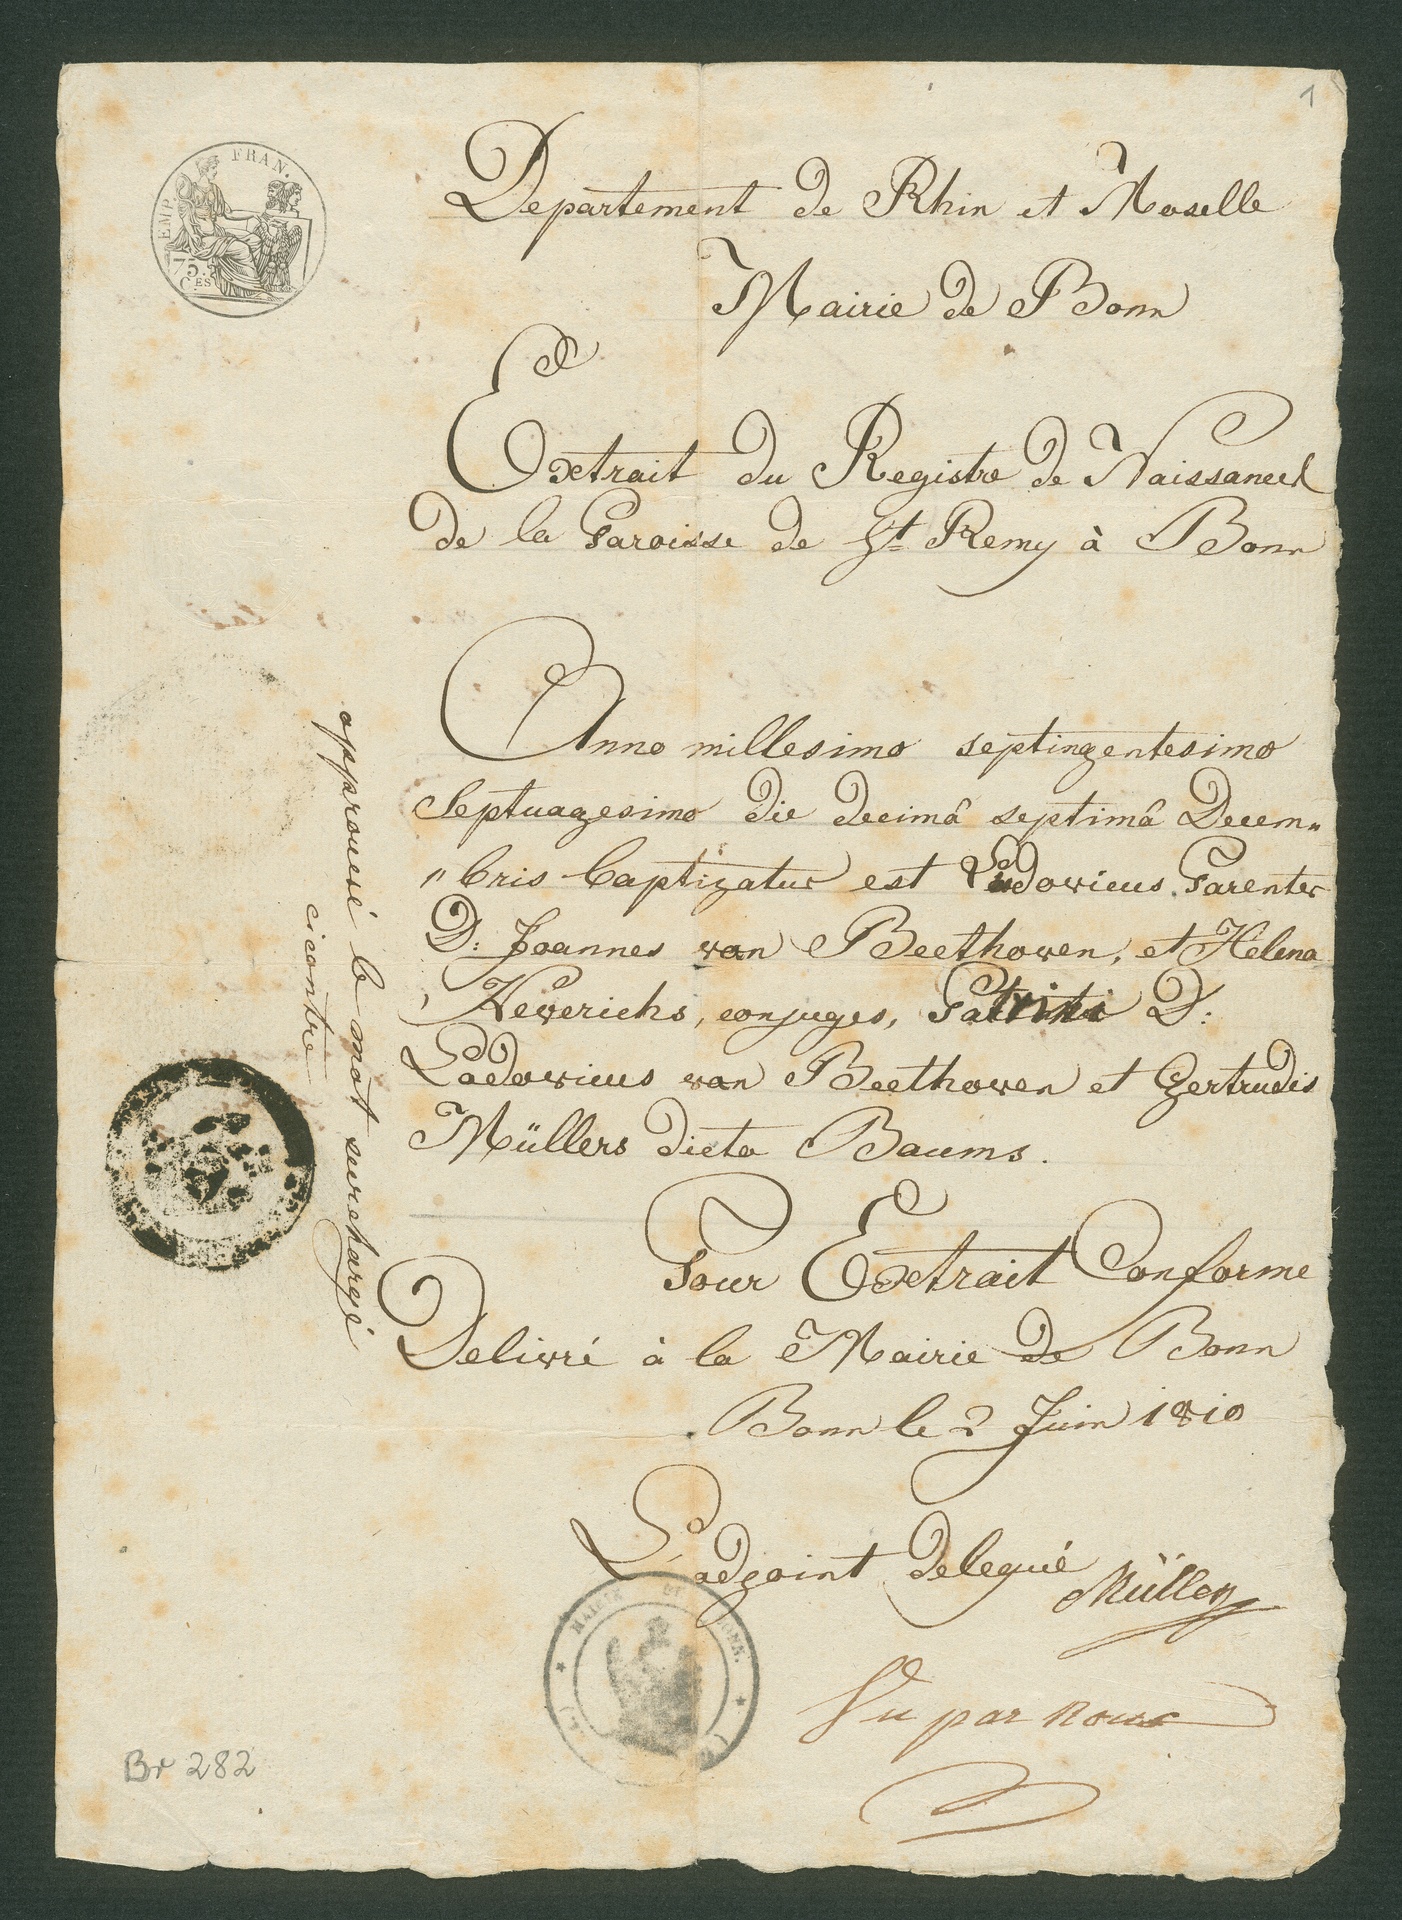 1
EMP. FRAN.
75.
CES
Departement de Rhin et Moselle
Mairie de Bonn
Extrait du Registre de Naissances
de la Paroisse de St Remy à Bonn
Anno millesimo septingentesimo
Septuagesimo die decimâ septimâ Decem„
„bris baptizatus est Ludovicus. Parentes
D: Joannes van Beethoven, et Helena
Keverichs, conjuges, Patrini D:
Ludovicus van Beethoven et Gertrudis
Müllers dicta Baums.
approuvé le mot surchargé
cicontre
Pour Extrait Conforme
Delivré à la Mairie de Bonn
Bonn le 2 Juin 1810
L'adjoint delegué
Müller
MAIRIE DE BONN.
Vu par nous
Br 282